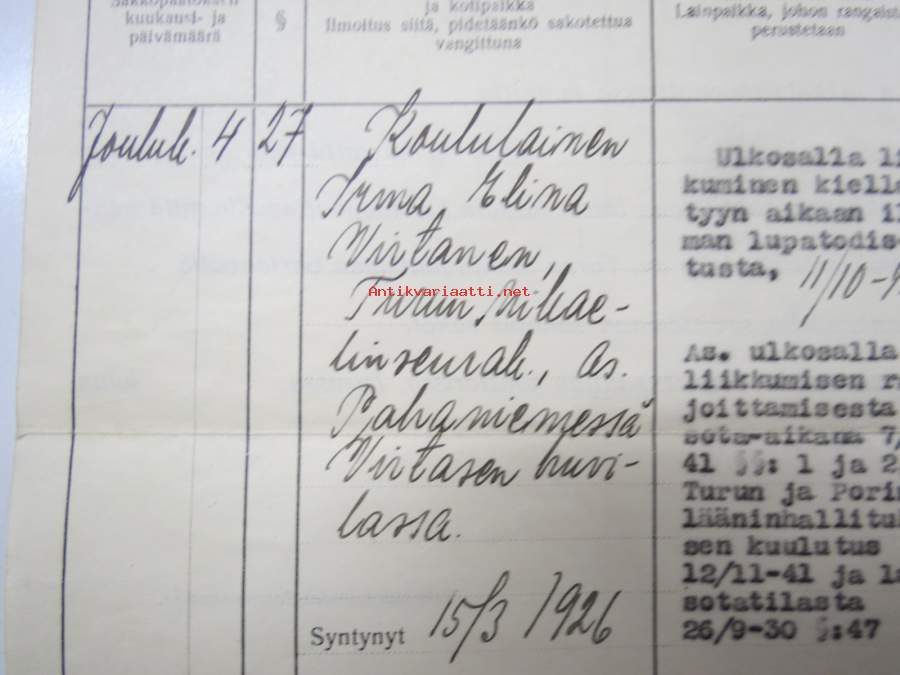 Sakkopäätöksen
kuukausi- ja
päivämäärä
§
ja kotipaikka
Ilmoitus siitä, pidetäänkö sakotettua
vangittuna
Lainpaikka, johon rangaist
perustetaan
Jouluk. 4
27
Koululainen
Irma Elina
Virtanen,
Turun Mikae-
linseurak., as.
Pahaniemessä
Virtasen huvi-
lassa.
Syntynyt 15/3 1926
Ulkosalla li
kuminen kielle
tyyn aikaan il
man lupatodis-
tusta, 11/10-4
As. ulkosalla
liikkumisen ra
joittamisesta
sota-aikana 7/
41 §§: 1 ja 2
Turun ja Porin
lääninhallituk
sen kuulutus
12/11-41 ja la
sotatilasta
26/9-30 §:47
Antikvariaatti.net